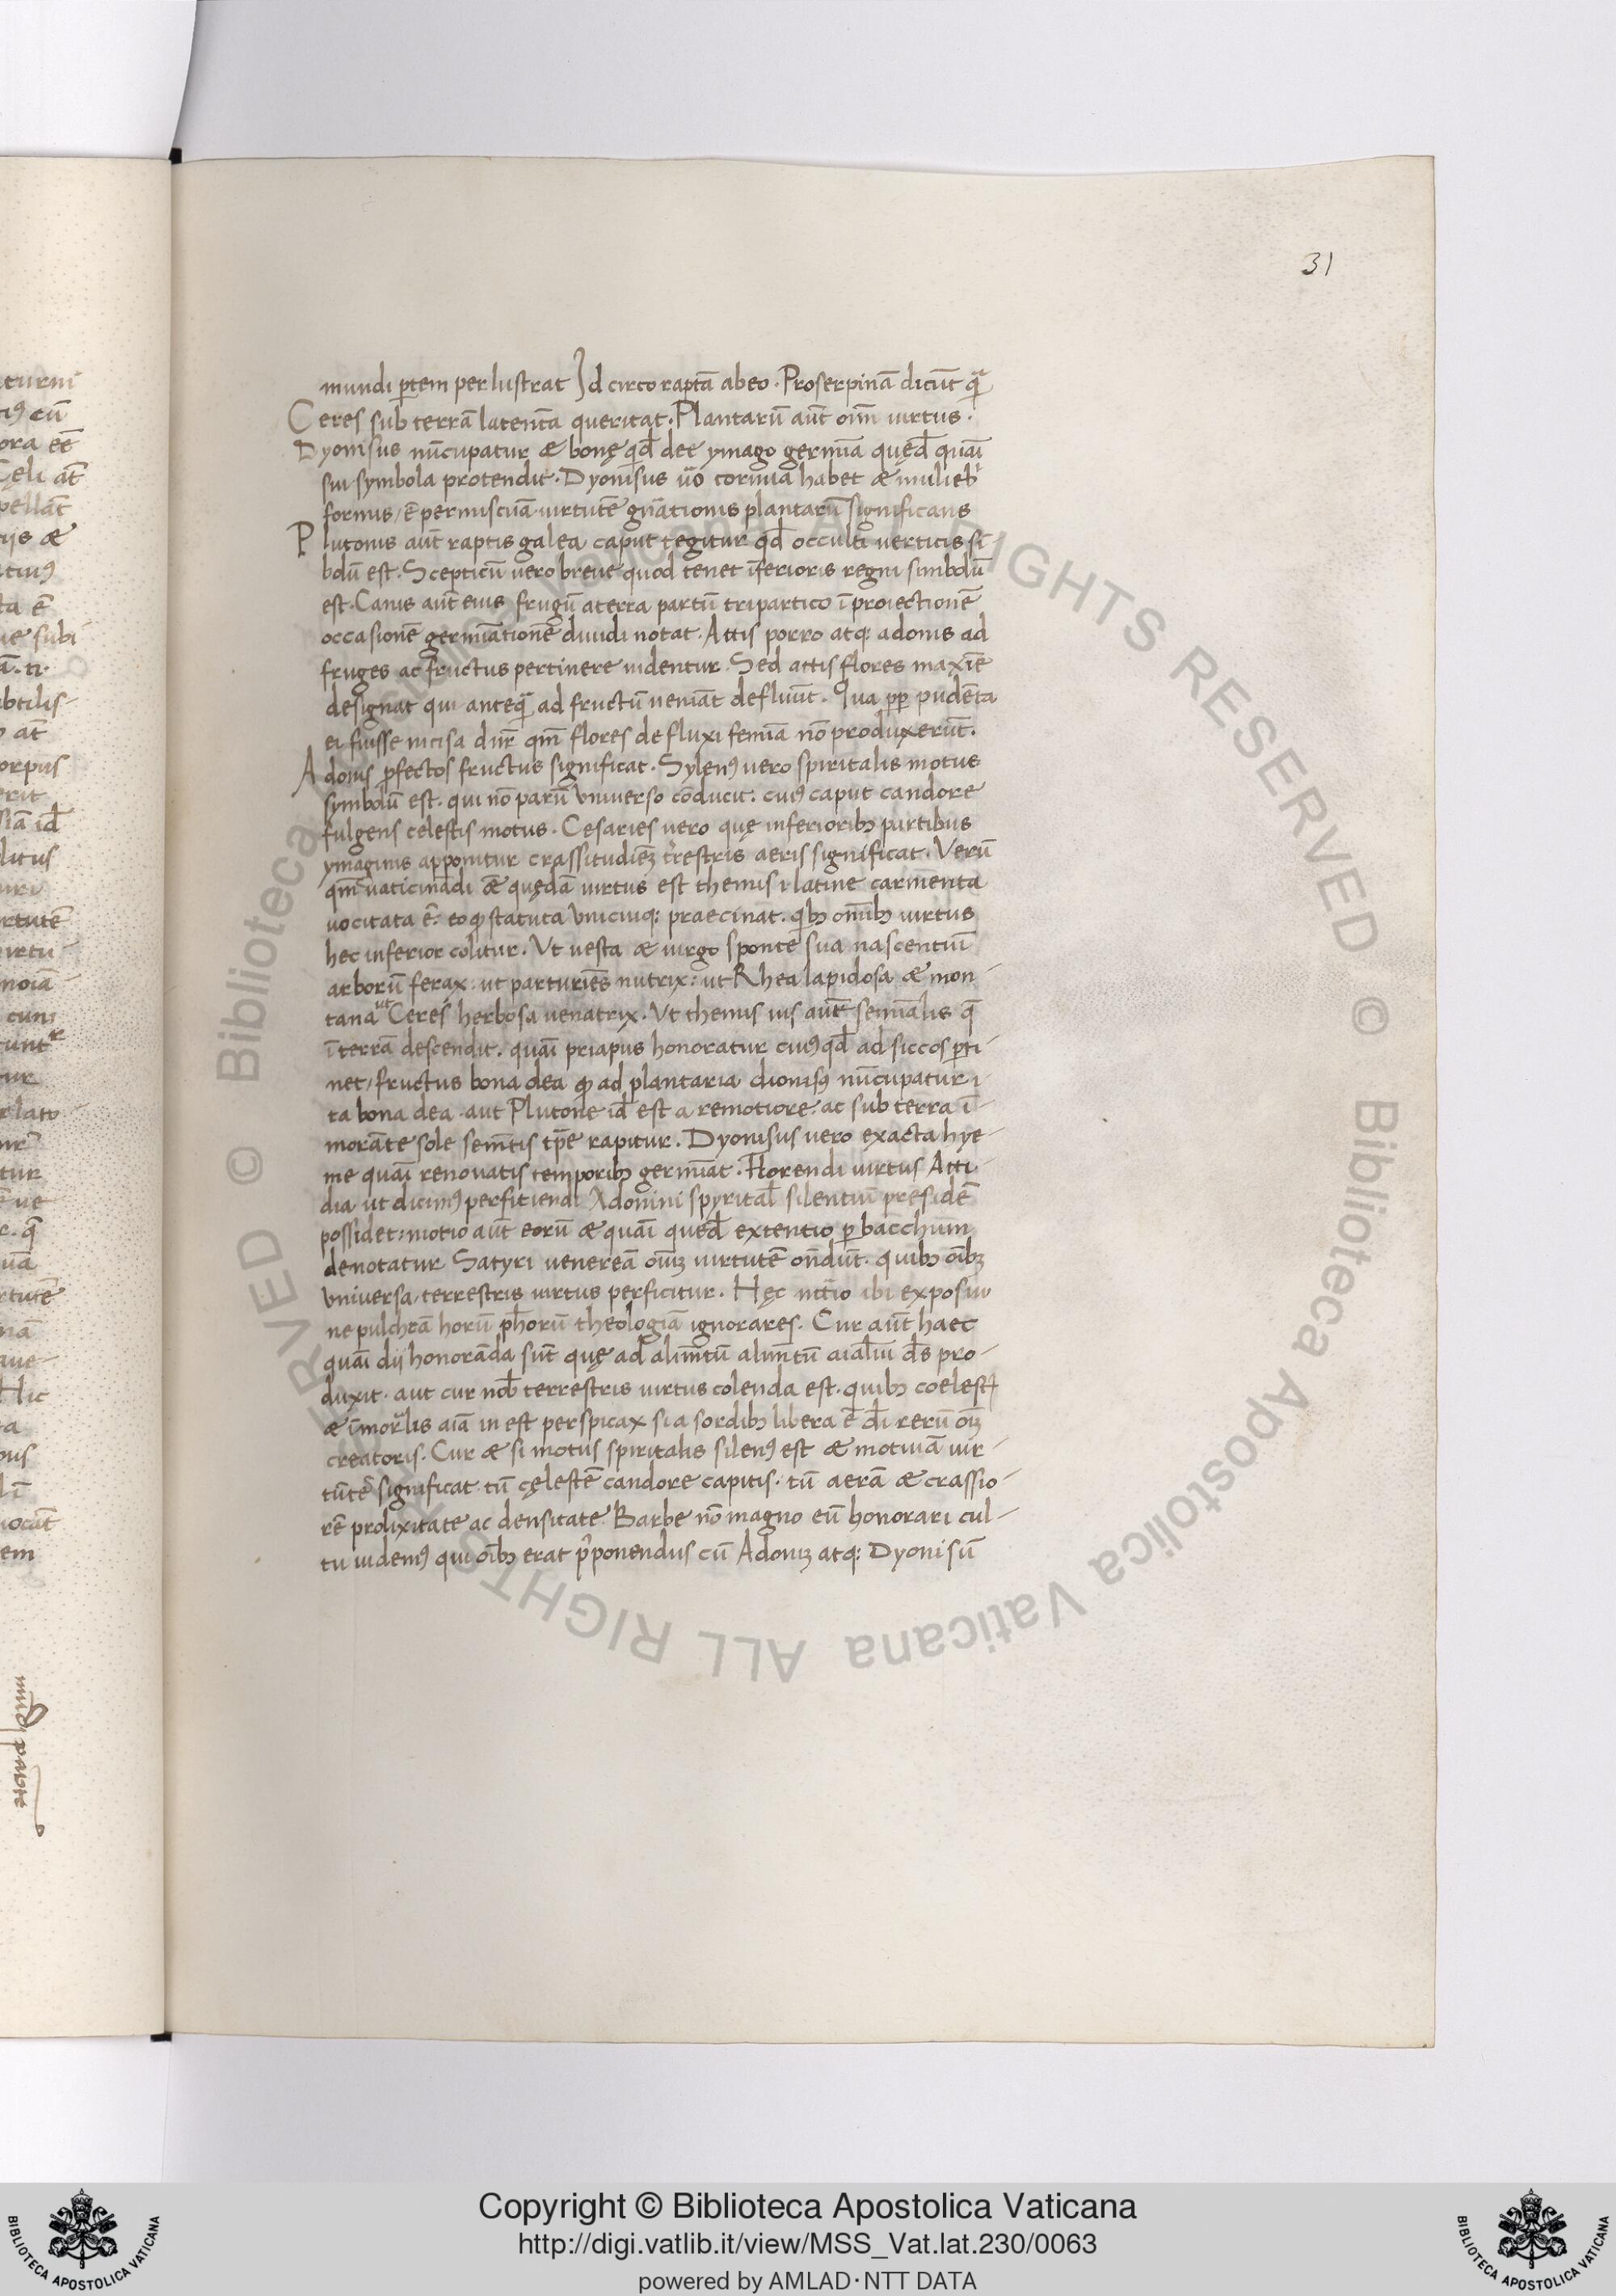 31
mundi ꝑtem perlustrat Id circo raptã abeo. Proserpinã dicũt q̃
Ceres sub terrã latentẽ queritat. Plantarũ aũt om̃ uirtus.
Dyonisus nũcupatur & bonę qd̃ dee ymago germĩa quęd̃ quãi
sui symbola protendit. Dyonisus ũo cornua habet & mulieb̃
formis / ẽ permiscuã uirtutẽ gñationis plantarũ significans
Plutonis aũt raptis galea caput tegitur qd̃ occulti uerticis sĩ
bolũ est. Scepticũ uero breue quod tenet ĩferioris regni simbolũ
est. Canis aũt eius frugũ aterra partũ tripartico ĩ proiectionẽ
occasionẽ germĩationẽ diuidi notat. Attis porro atq; adonis ad
fruges ac fructus pertinere uidentur. Sed attis flores maxĩe
designat qui anteq̃ ad fructũ ueniãt defluũt. Qua ꝓꝑ pudẽta
ei fuisse incisa dũr qm̃ flores defluxi femĩa nõ produxerũt.
Adonis ꝑfectos fructus significat. Sylenꝰ uero spiritalis motus
symbolũ est. qui nõ parũ Vniuerso cõducit. cuiꝰ caput candore
fulgens celestis motus. Cesaries uero quę inferiorib; partibus
ymaginis apponitur crassitudiẽ; t̃restris aeris significat. Verũ
qm̃ uaticinãdi & quędã uirtus est themis i latine carmẽnta
uocitata ẽ. eo ꝙ statuta Vnicuiq; praecinat. qib; om̃ib; uirtus
hec inferior colitur. Vt uesta & uirgo sponte sua nascentiũ
arborũ ferax. ut parturiẽs nutrix: ut Rhea lapidosa & mon-
tana ut Ceres herbosa uenatrix. Vt themis uis aũt semĩalis q̃
ĩ terrã descendit. quãi priapus honoratur cuiꝰ qd̃ ad siccos ꝑti-
net / fructus bona dea ꝙ ad plantaria dionisꝰ nũcupatur i-
ta bona dea aut Plutone id̃ est a remotiore. ac sub terra ĩ-
morãte sole semẽtis tp̃e rapitur. Dyonisus uero exacta hye-
me quãi renouatis temporib; germĩat. Florendi uirtus Atti-
dia ut dicimꝰ perficiendi Adonini spyrital̃ silentiũ presidẽ
possidet: motio aũt eorũ & quãi qued̃ extentio ꝑ bacchum
denotatur Satyri uenereã om̃; uirtutẽ oñdũt. quib; oĩb;
Vniuersa / terrestris uirtus perficitur. Hęc nĩtio ibi exposui
ne pulchrã horũ ph̃orũ theologiã ignorares. Cur aũt haec
quãi dij honorãda sũt quę ad alimẽtũ alimẽtũ aial̃iũ d̃s pro-
duxit. aut cur nob̃ terrestris uirtus colenda est. quib; coelest
& ĩmor̃lis aĩa in est perspicax si a sordib; libera ẽ d̃i rerũ om̃;
creatoris. Cur & si motus spiritalis silenꝰ est & motiuã uir-
tũtẽ significat tũ cęlestẽ candore capitis. tũ aerã & crassio-
rẽ prolixitate ac densitate Barbe nõ magno eũ honorari cul-
tu uidemꝰ qui oĩb; erat p̃ponendus cũ Adoni; atq; Dyonisũ
Copyright © Biblioteca Apostolica Vaticana
http://digi.vatlib.it/view/MSS_Vat.lat.230/0063
powered by AMLAD·NTT DATA